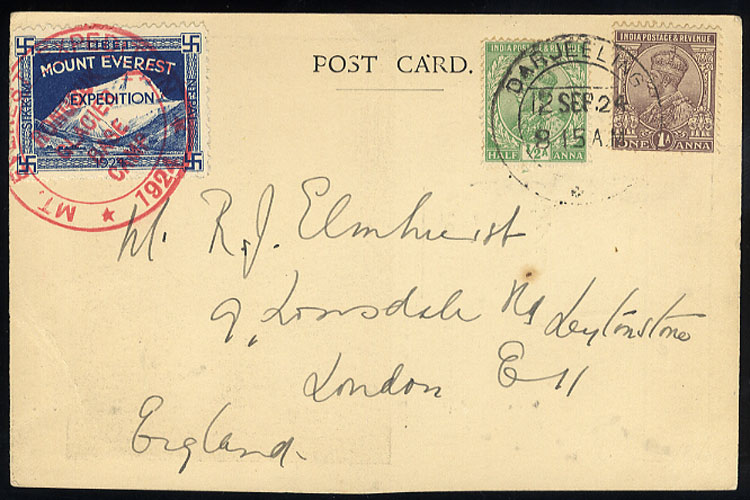 TIBET
MOUNT EVEREST
EXPEDITION
1924
SIKKIM
MT. EVEREST EXPEDITION
1924
POST CARD.
INDIA POSTAGE & REVENUE
HALF ½A ANNA
INDIA POSTAGE & REVENUE
ONE 1A ANNA
DARJEELING
12 SEP. 24
8 15 A.M
Mr. R. J. Elmhurst
9, Lonsdale Rd Leytonstone
London E 11
England.